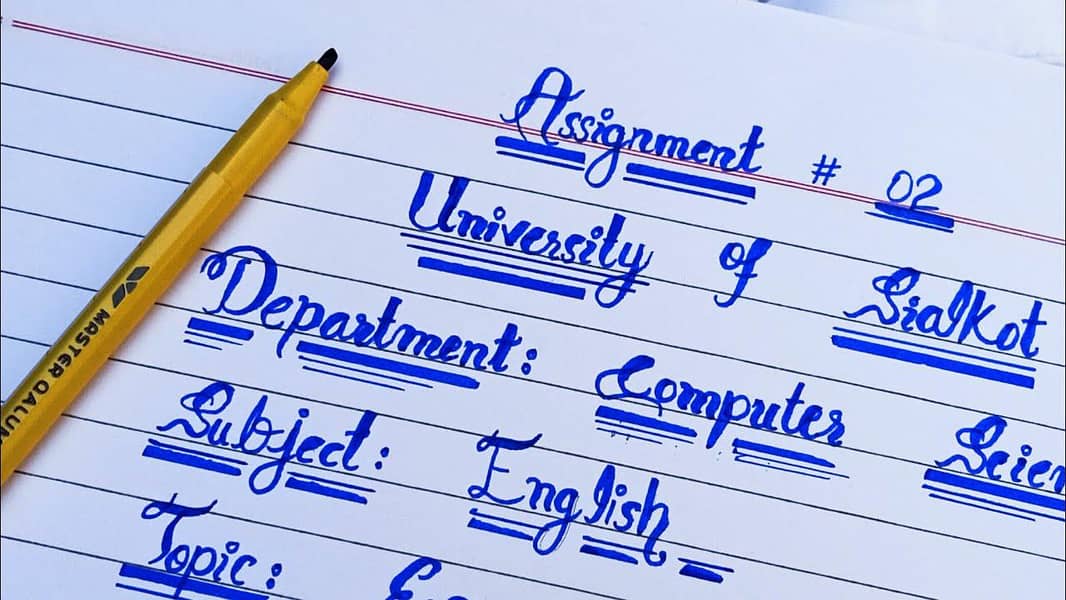 Assignment # 02
University of Sialkot
Department: Computer
Subject: English
Topic:
MASTER